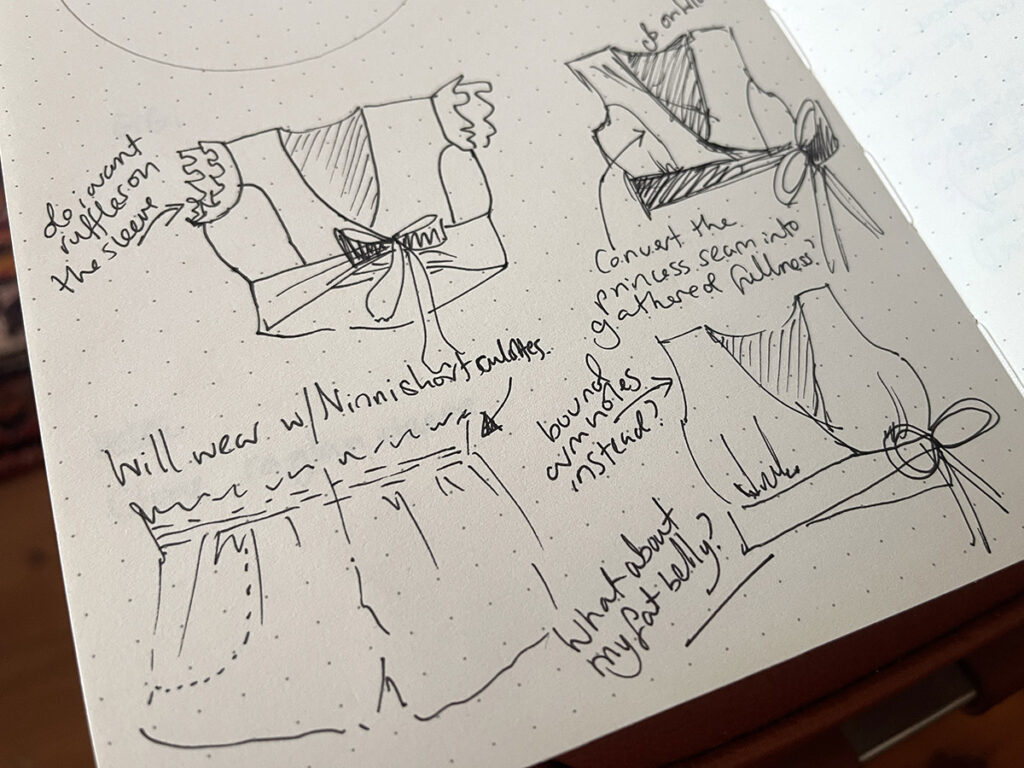 do i want
ruffles on
the sleeve
Convert the
princess seam into
gathered fullness?
Will wear w/Ninni short culottes.
bound
armholes
instead?
What about
my fat belly?